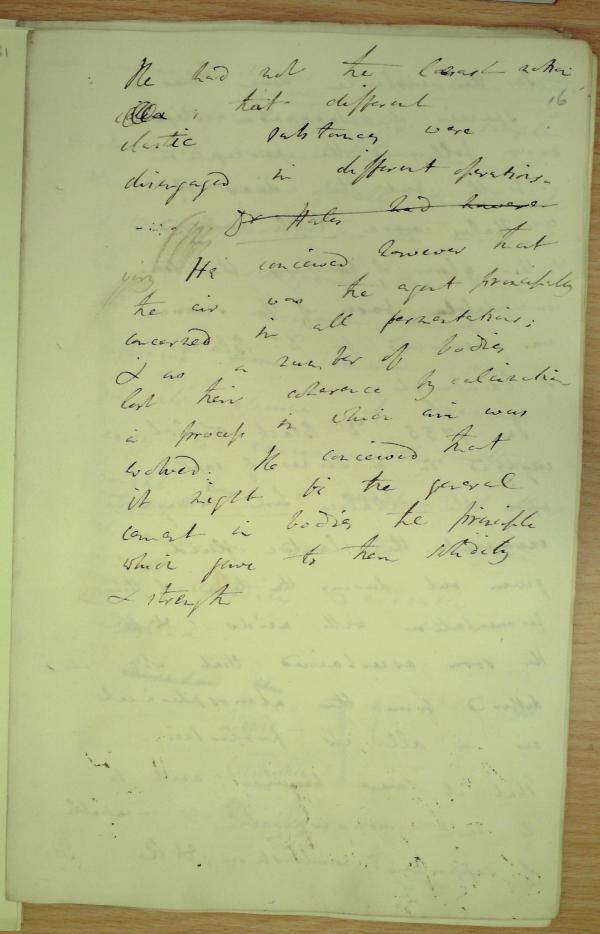 He had not the least notion
16
that different
elastic substances were
disengaged in different operations.
Dr Hales had however
He conceived however that
the air was the agent principally
concerned in all fermentations;
& as a number of bodies
lost their coherence by calcination
a process in which air was
evolved. He conceived that
it might be the general
cement in bodies the principle
which gave to them solidity
& strength